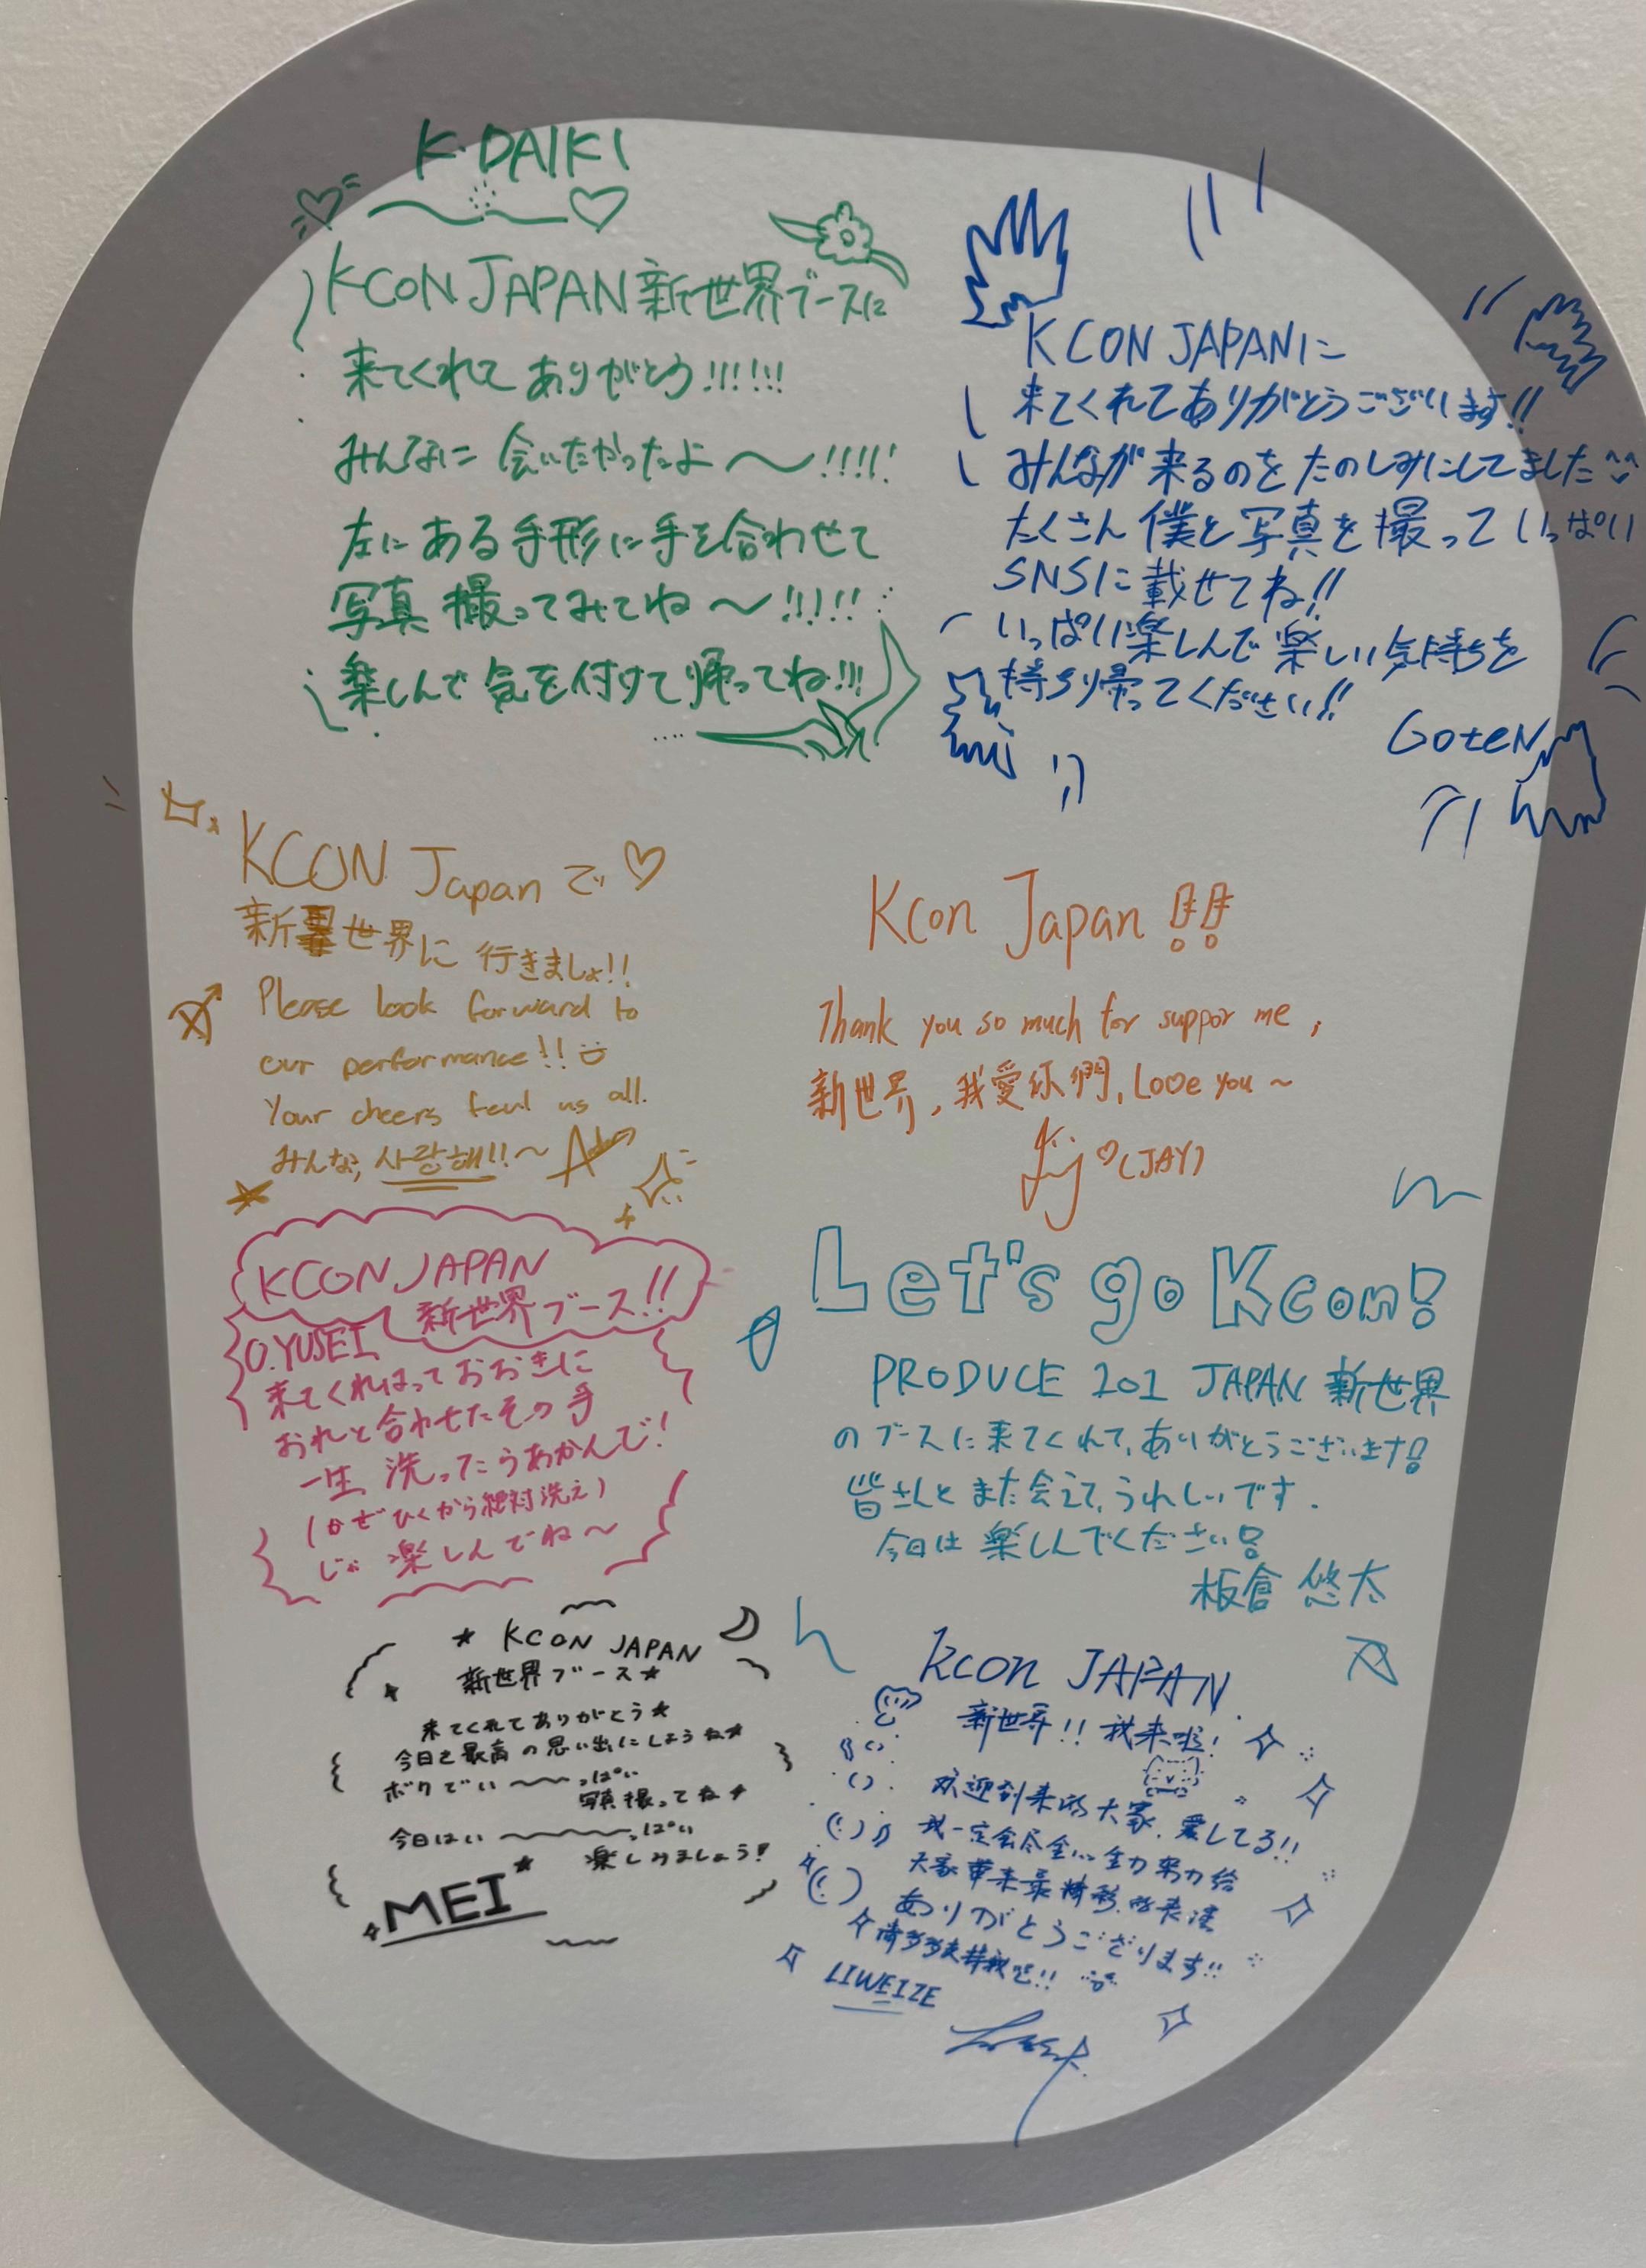 K.DAIKI
KCON JAPAN 新世界ブースに
来てくれて ありがとう!!!!!!
みんなに 会いたかったよ〜!!!!!
左にある手形に手を合わせて
写真 撮ってみてね〜!!!!!
楽しんで 気を付けて帰ってね!!!
KCON JAPANに
来てくれてありがとうございます!!
みんなが来るのをたのしみにしてました^^
たくさん僕と写真を撮っていっぱい
SNSに載せてね!!
いっぱい楽しんで楽しい気持ちを
持ち帰ってください!!
GoteN
KCON Japan で♡
新世界に 行きましょ!!
Please look forward to
our performance!!
Your cheers feul us all.
みんな, 사랑해!!~
Kcon Japan !!
Thank you so much for suppor me,
新世界, 我愛你們, Love you ~
♡(JAY)
KCON JAPAN
新世界ブース!!
O.YUSEI
来てくれはっておおきに
おれと合わせたその手
一生 洗ったらあかんで!
(かぜひくから絶対洗え)
じゃ 楽しんでね〜
Let's go Kcon!
PRODUCE 101 JAPAN 新世界
のブースに来てくれて、ありがとうございます!
皆さんとまた会えて、うれしいです.
今日は 楽しんでください!
板倉 悠太
★ KCON JAPAN
新世界ブース★
来てくれてありがとう★
今日を最高の思い出にしようね★
ボクでい〜〜っぱい
写真撮ってね★
今日はい〜〜〜っぱい
楽しみましょう!
MEI★
Kcon JAPAN
新世界!! 我来啦!
欢迎到来的大家, 愛してる!!
我一定会尽全心全力努力给
大家带来最精彩的表演
ありがとうございます!!
请多多支持我吧!!
LIWEIZE